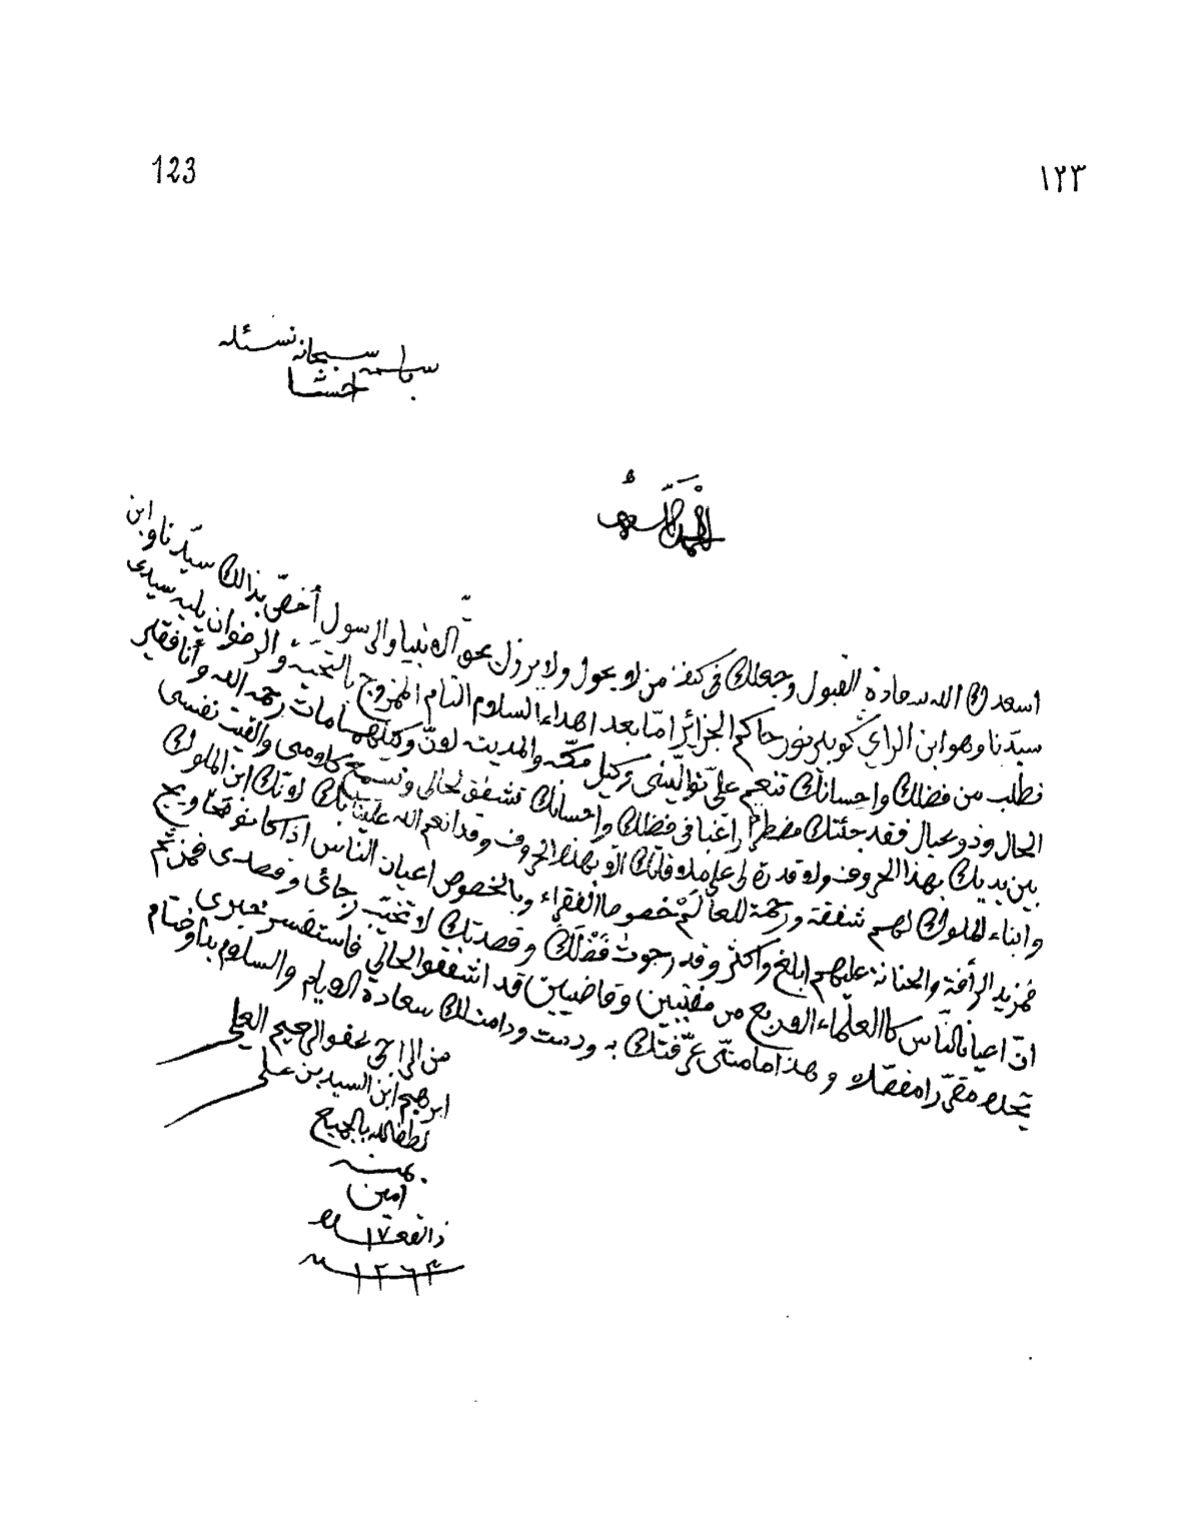 123
١٢٣
باسمه سبحانه نسئله
الحمد لله
اسعدك الله سعادة القبول وجعلك في كنف من لا يحول ولا يزول بحق الانبيا والرسول أخصّ بذالك سيّدنا وابن
سيّدنا وهو ابن الراي كوبلرنور حاكم الجزائر امّا بعد اهداء السلام التام الممزوج بالتحيّة والرضوان يليه سيدى
نطلب من فضلك واحسانك تنعم عليّ توالّينى وكيل مكّه والمدينه لانّ وكيلهما مات رحمه الله وأنا فقير
الحال وذو عيال فقد جئتك مضطرّا راغبا في فضلك واحسانك تشفق لحالي وتسمع كلامى والقيت نفسى
بين يديك بهذا الحروف ولا قدرة لى على ملاقاتك الا بهذا الحروف وقد انعم الله علينا بك لانّك ابن الملوك
وابناء الملوك لهم شفقة ورحمة للعالم خصوصا الفقراء وبالخصوص اعيان النّاس اذا كانو محاويج
فمزيد الرأفة والحنانة عليهم ابلغ واكثر وقد رجوت فضلك وقصدتك لا تخيّب رجائى وقصدى فمن ثَمّ
انّ اعيان النّاس كالعلماء الاربع من مفتيين وقاضيين قد اشفقو لحالي فاستفسر خبرى
تجده مقرّرا مفصّلا وهذا ما منّى عرّفتك به ودمت ودامت لك سعادة الايام والسلام بدأ وختام
من الراجي عفو الرحيم العلي
ابرهيم ابن السيد بن علي
لطف الله بالجميع
بمنه
امين
١٧ ذا القعدة
سنة ١٢٦٣